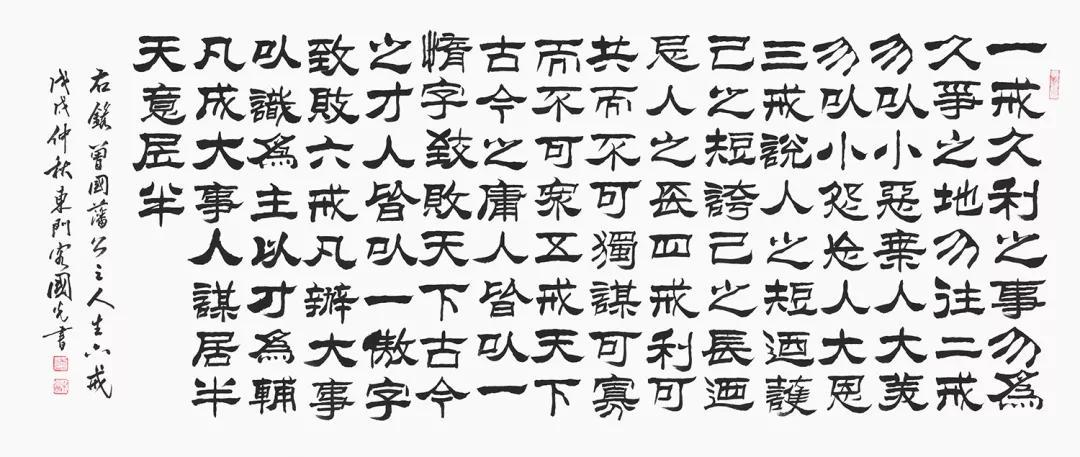 一戒久利之事勿為
久爭之地勿往二戒
勿以小惡棄人大美
勿以小怨忘人大恩
三戒說人之短迺護
己之短誇己之長迺
忌人之長四戒利可
共而不可獨謀可寡
而不可眾五戒天下
古今之庸人皆以一
惰字致敗天下古今
之才人皆以一傲字
致敗六戒凡辦大事
以識為主以才為輔
凡成大事人謀居半
天意居半
右錄曾國藩公之人生六戒
戊戌仲秋東門客國光書